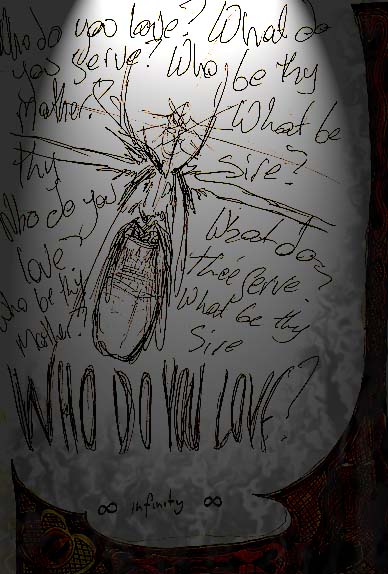 Who do you love? What do
you serve? Who be thy
Mother? What be
thy Sire?
Who do you What do
love? Thee serve.
Who be thy What be thy
Mother? Sire
WHO DO YOU LOVE?
∞ infinity ∞